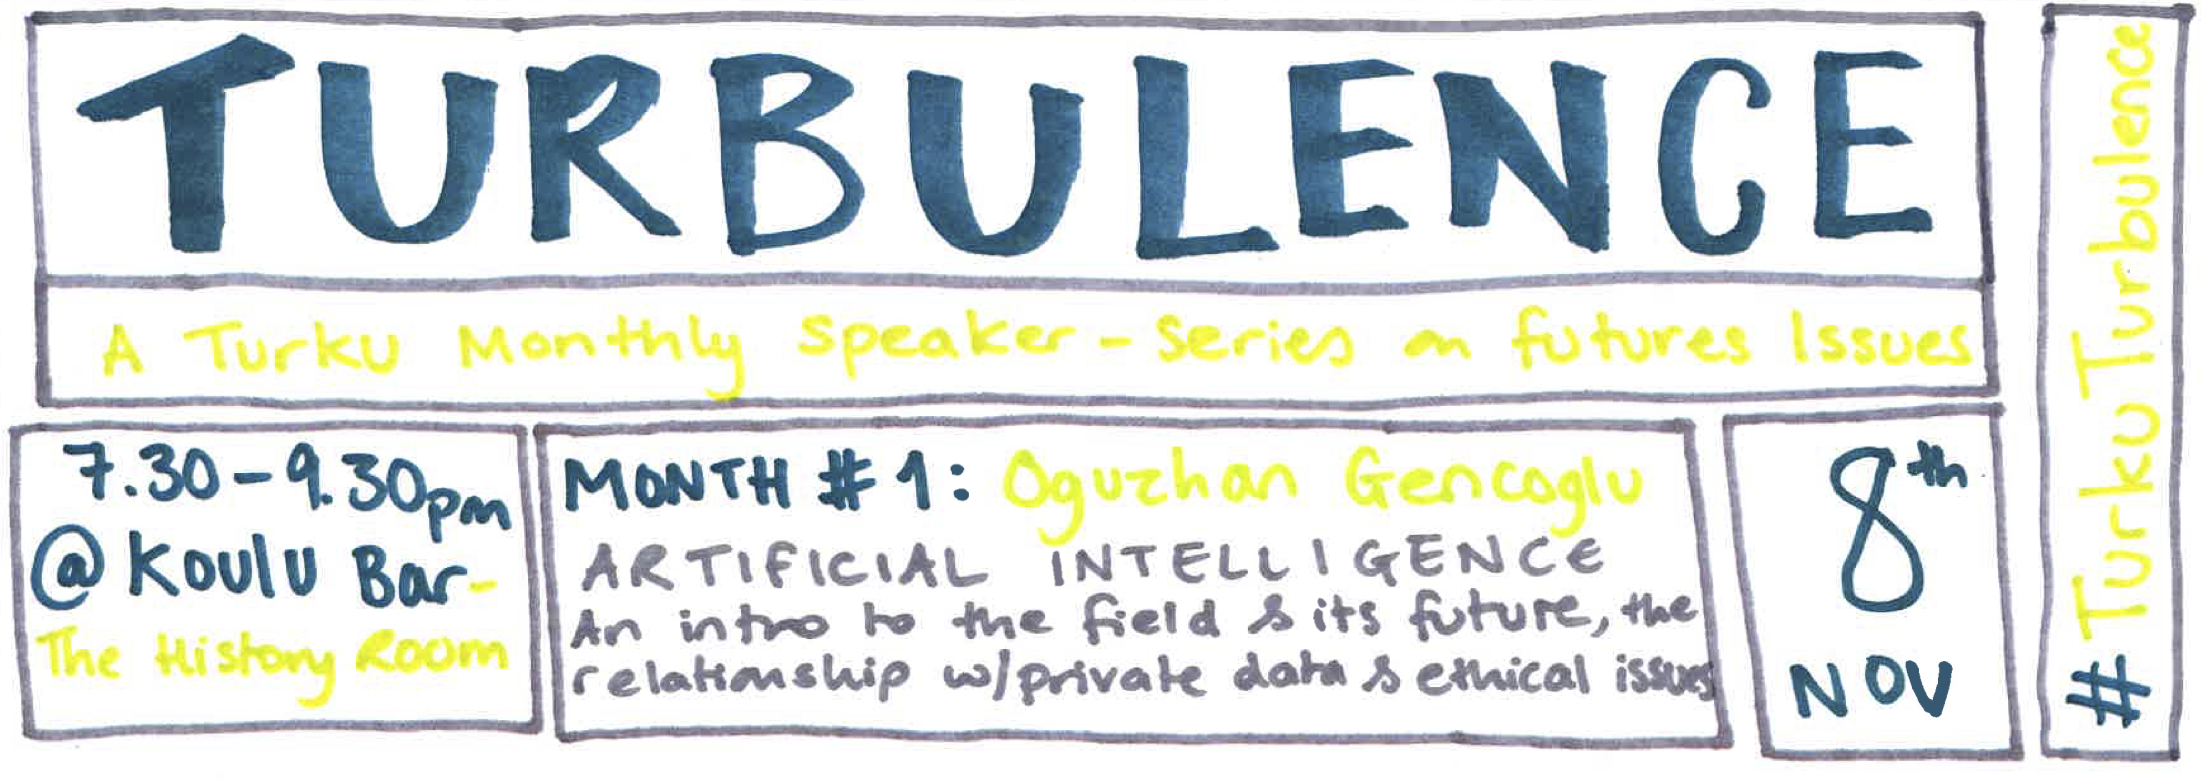 TURBULENCE
A Turku Monthly Speaker-Series on futures Issues
7.30-9.30pm
@ Koulu Bar-
The History Room
MONTH #1: Oguzhan Gencoglu
ARTIFICIAL INTELLIGENCE
An intro to the field & its future, the
relationship w/private data & ethical issues
8th
NOV
# Turku Turbulence